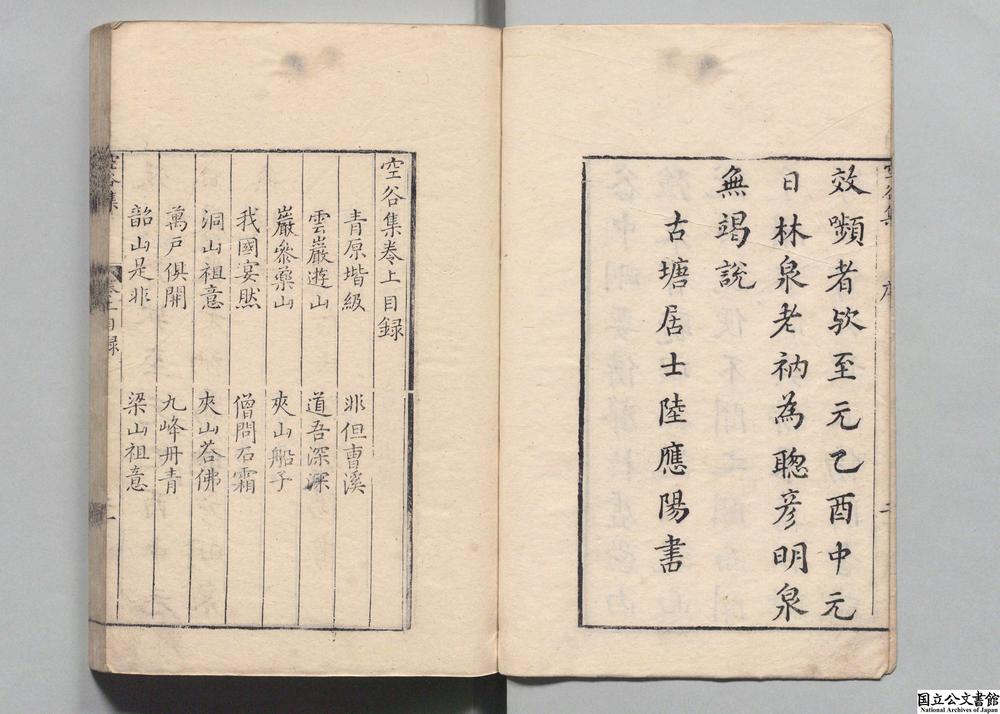 效顰者欤至元乙酉中元
日林泉老衲為聰彥明泉
無竭說
古塘居士陸應陽書
空谷集卷上目録
青原堦級 非但曹溪
雲巖遊山 道吾深深
巖叅藥山 夾山船子
我國宴然 僧問石霜
洞山祖意 夾山荅佛
萬戸俱開 九峰丹青
韶山是非 梁山祖意
空谷集
国立公文書館
National Archives of Japan